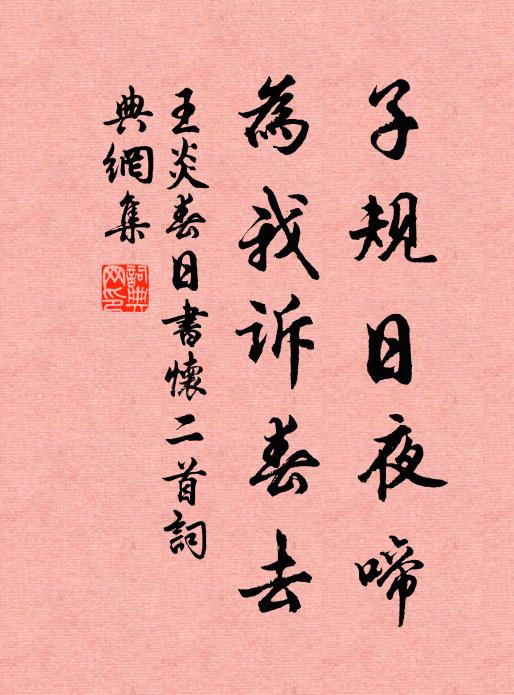 子規日夜啼
為我訴春去
王炎春日書懷二首詞
典網集
詞典
网印